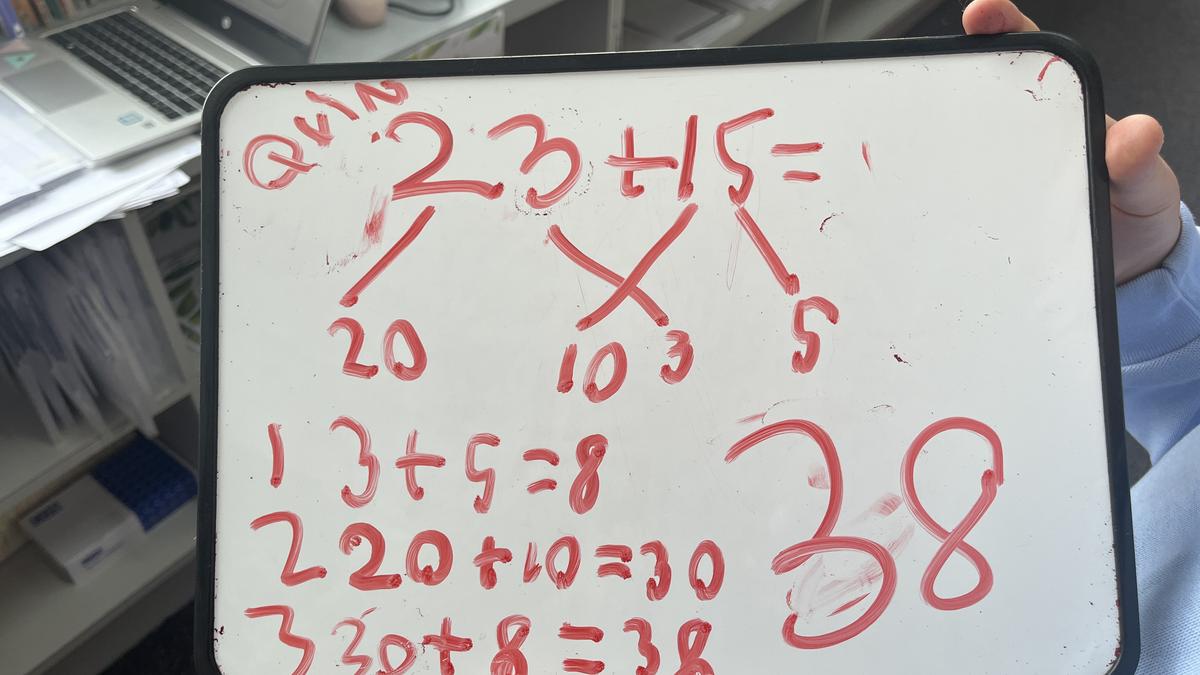 Quin
23+15=
20 10 3 5
1 3+5=8
2 20+10=30
3 30+8=38
38